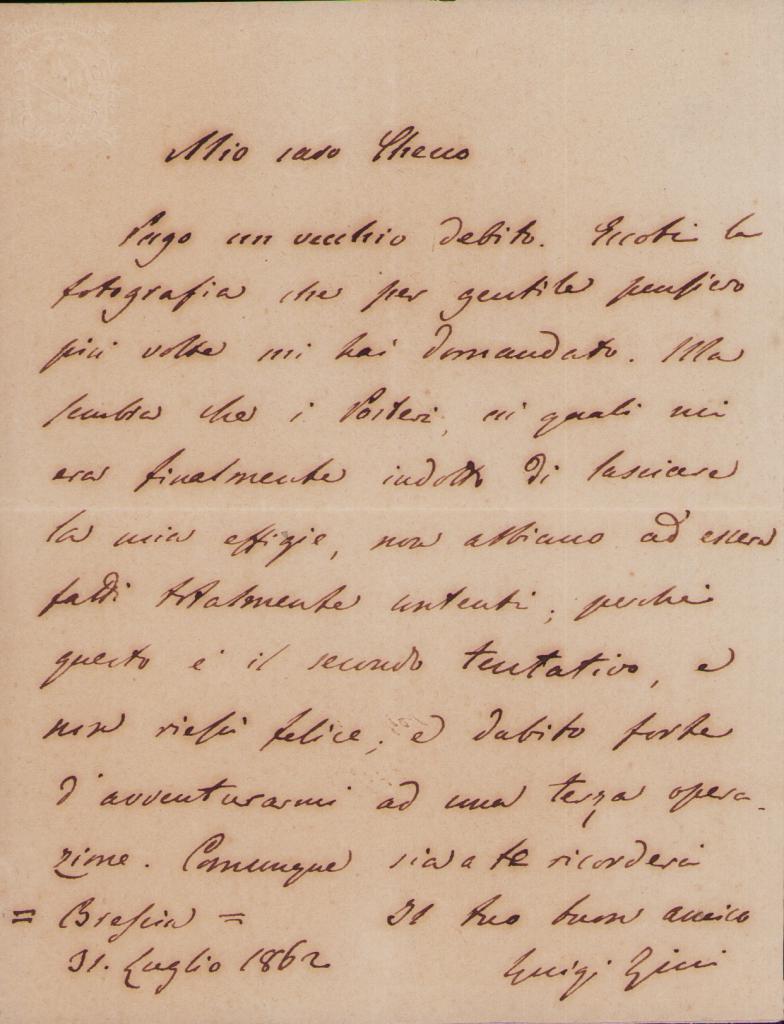 Mio caro Checco
Pago un vecchio debito. Eccoti la
fotografia che per gentile pensiero
più volte mi hai domandato. Ma
sembra che i Posteri, ai quali mi
era finalmente indotto di lasciare
la mia effigie, non abbiano ad essere
fatti totalmente contenti; perchè
questo è il secondo tentativo, e
non riescì felice; e dubito forte
d'avventurarmi ad una terza opera-
zione. Comunque sia a te ricorderà
= Brescia = Il tuo buon amico
31. Luglio 1862 Luigi Zini